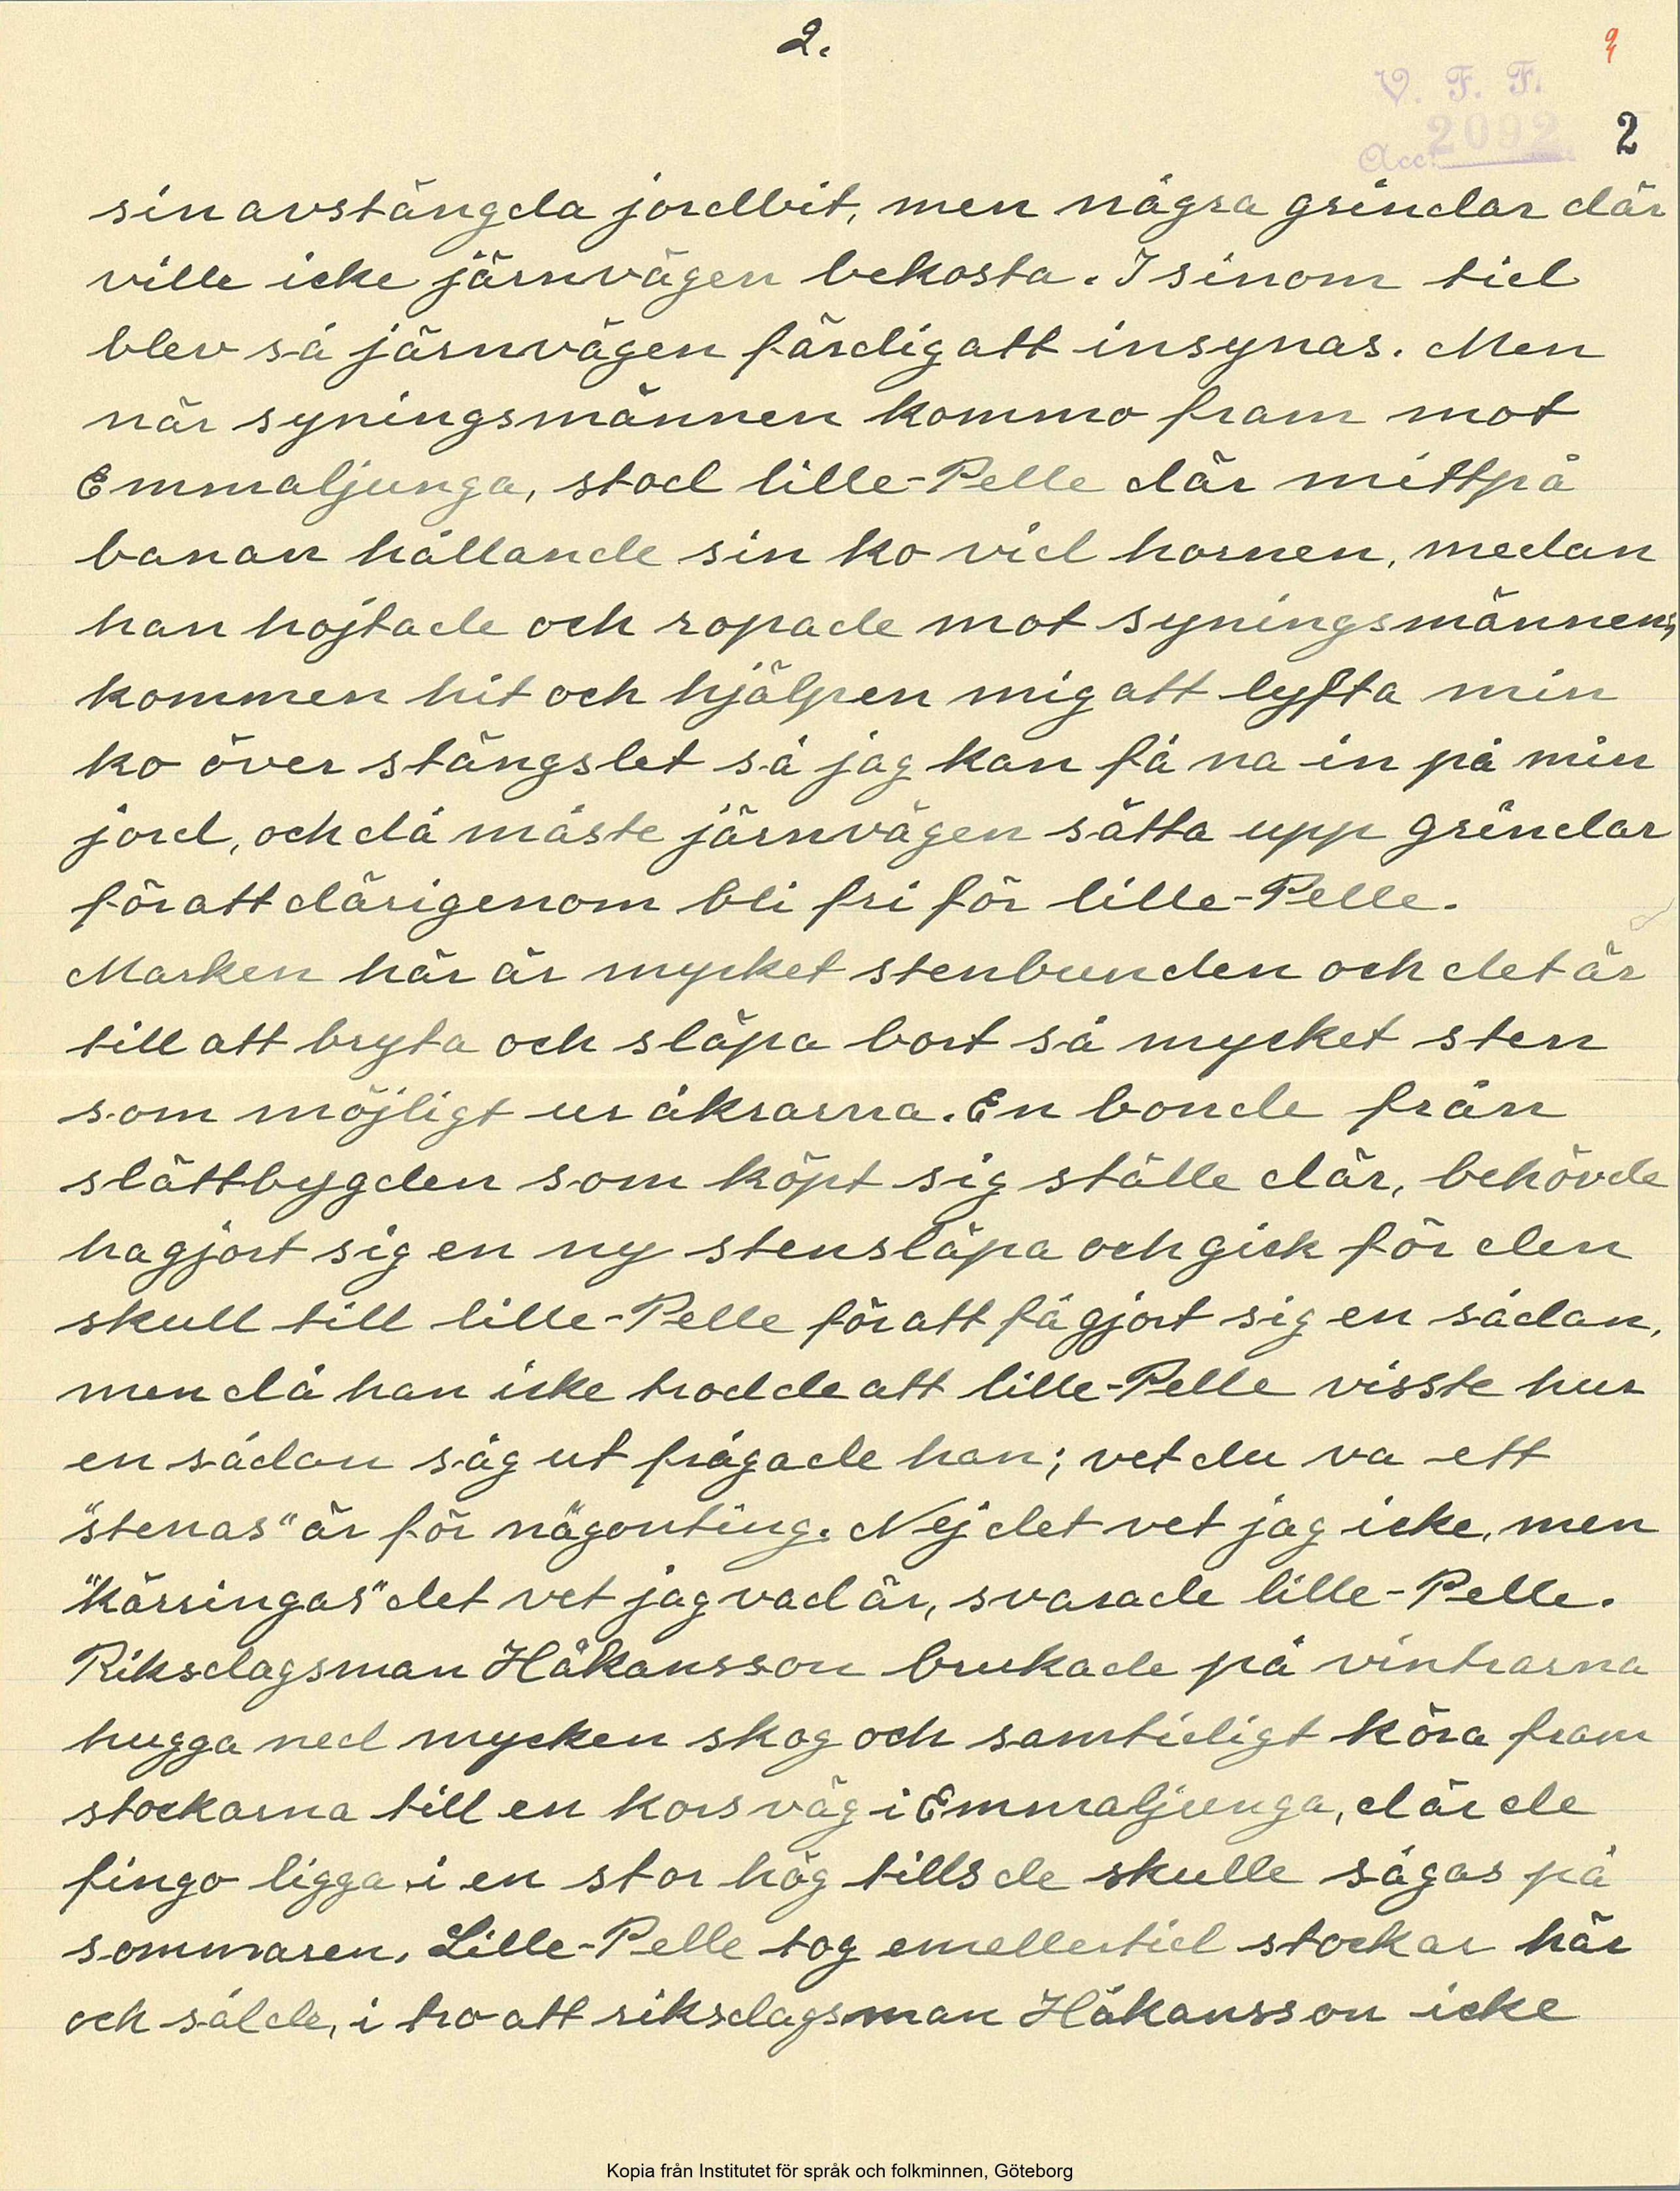 2.
9
V. F. F.
2092
Acc.
2
sin avstängda jordbit, men några grindar där
ville icke järnvägen bekosta. I sinom tid
blev så järnvägen färdig att insynas. Men
när syningsmännen kommo fram mot
Emmaljunga, stod lille-Pelle där mitt på
banan hållande sin ko vid hornen, medan
han hojtade och ropade mot syningsmännen,
kommen hit och hjälpen mig att lyfta min
ko över stängslet så jag kan få na in på min
jord, och då måste järnvägen sätta upp grindar
för att därigenom bli fri för lille-Pelle.
Marken här är mycket stenbunden och det är
till att bryta och släpa bort så mycket sten
som möjligt ur åkrarna. En bonde från
slättbygden som köpt sig ställe där, behövde
ha gjort sig en ny stensläpa och gick för den
skull till lille-Pelle för att få gjort sig en sådan,
men då han icke trodde att lille-Pelle visste hur
en sådan såg ut frågade han; vet du va ett
"stenas" är för någonting. Nej det vet jag icke, men
"kärringas" det vet jag vad är, svarade lille-Pelle.
Riksdagsman Håkansson brukade på vintrarna
hugga ned mycken skog och samtidigt köra fram
stockarna till en korsväg i Emmaljunga, där de
fingo ligga i en stor hög tills de skulle sågas på
sommaren. Lille-Pelle tog emellertid stockar här
och sålde, i tro att riksdagsman Håkansson icke
Kopia från Institutet för språk och folkminnen, Göteborg